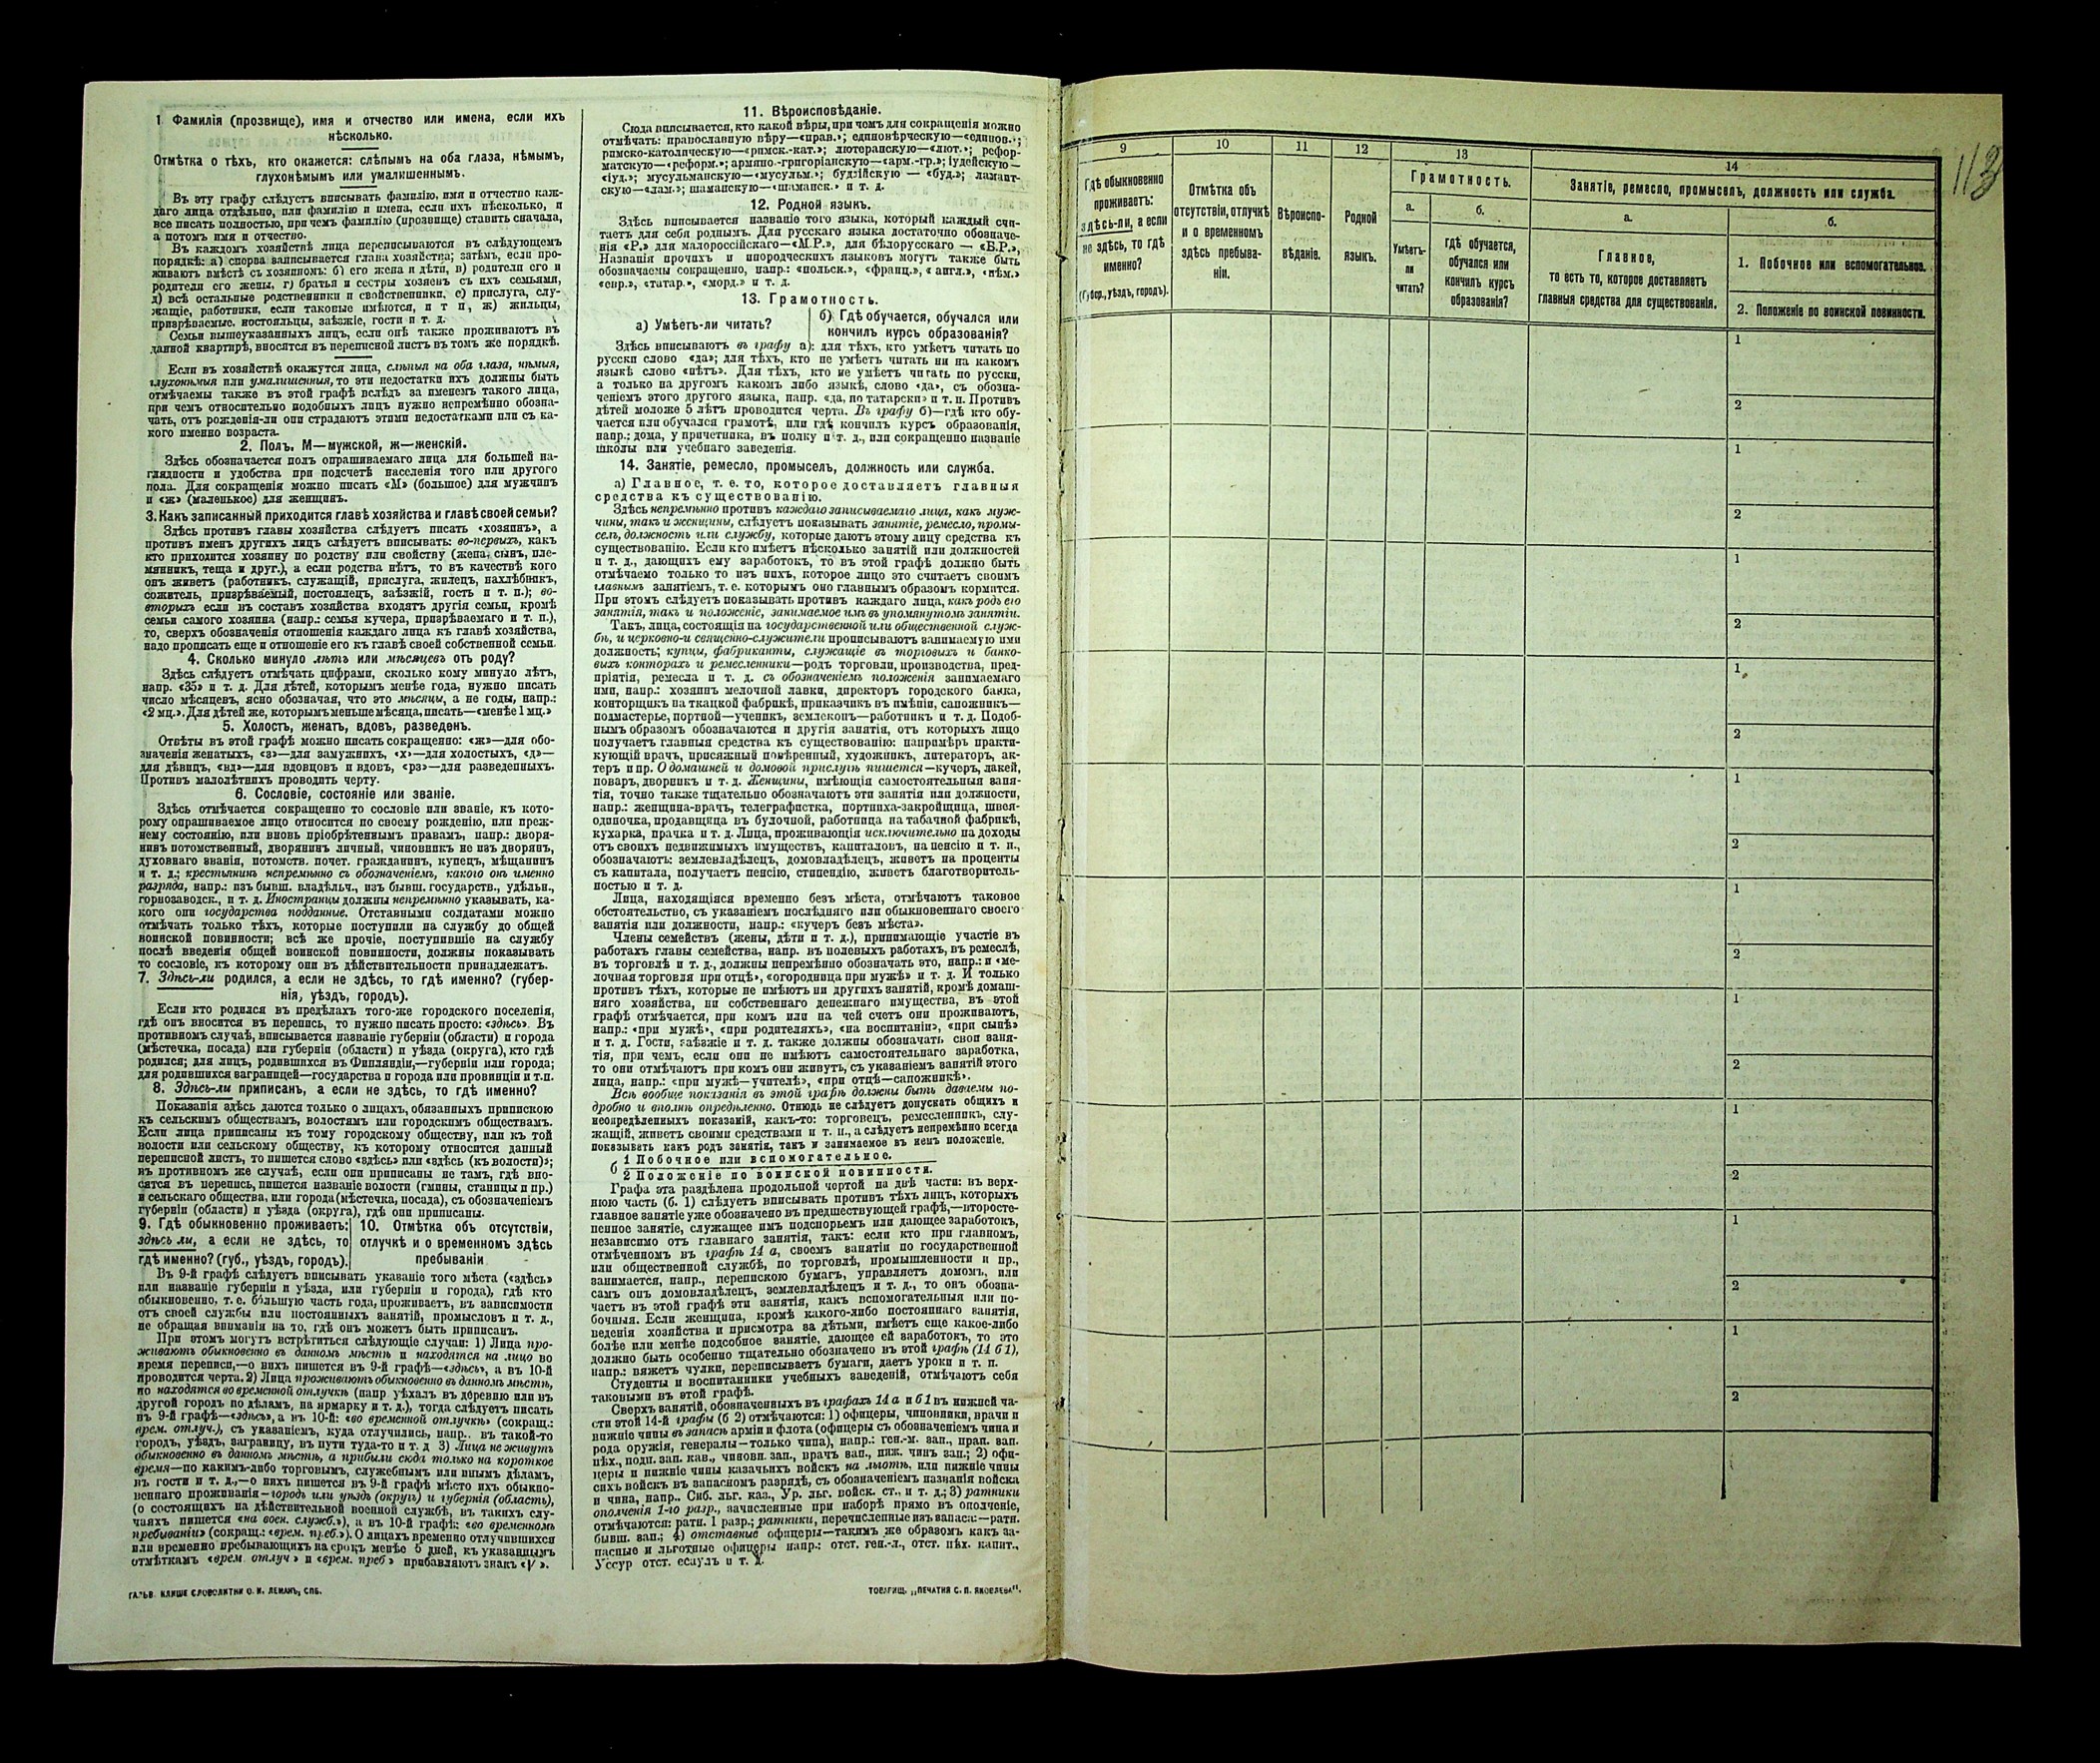 1 Фамилія (прозвище), имя и отчество или имена, если ихъ
нѣсколько.
Отмѣтка о тѣхъ, кто окажется: слѣпымъ на оба глаза, нѣмымъ,
глухонѣмымъ или умалишеннымъ.
Въ эту графу слѣдуетъ вписывать фамилію, имя и отчество каж-
даго лица отдѣльно, или фамилію и имена, если ихъ нѣсколько, и
все писать полностью, при чемъ фамилію (прозвище) ставить сначала,
а потомъ имя и отчество.
Въ каждомъ хозяйствѣ лица переписываются въ слѣдующемъ
порядкѣ: а) сперва записывается глава хозяйства; затѣмъ, если про-
живаютъ вмѣстѣ съ хозяиномъ: б) его жена и дѣти, в) родители его и
родители его жены, г) братья и сестры хозяевъ съ ихъ семьями,
д) всѣ остальные родственники и свойственники, е) прислуга, слу-
жащіе, работники, если таковые имѣются, и т п, ж) жильцы,
призрѣваемые, постояльцы, заѣзжіе, гости и т. д.
Семьи вышеуказанныхъ лицъ, если онѣ также проживаютъ въ
данной квартирѣ, вносятся въ переписной листъ въ томъ же порядкѣ.
Если въ хозяйствѣ окажутся лица, слѣпыя на оба глаза, нѣмыя,
глухонѣмыя или умалишенныя, то эти недостатки ихъ должны быть
отмѣчаемы также въ этой графѣ вслѣдъ за именемъ такого лица,
при чемъ относительно подобныхъ лицъ нужно непремѣнно обозна-
чать, отъ рожденія-ли они страдаютъ этими недостатками или съ ка-
кого именно возраста.
2. Полъ, М—мужской, ж—женскій.
Здѣсь обозначается полъ опрашиваемаго лица для большей на-
глядности и удобства при подсчетѣ населенія того или другого
пола. Для сокращенія можно писать «М» (большое) для мужчинъ
и «ж» (маленькое) для женщинъ.
3. Какъ записанный приходится главѣ хозяйства и главѣ своей семьи?
Здѣсь противъ главы хозяйства слѣдуетъ писать «хозяинъ», а
противъ именъ другихъ лицъ слѣдуетъ вписывать: во-первыхъ, какъ
кто приходится хозяину по родству или свойству (жена, сынъ, пле-
мянникъ, теща и друг.), а если родства нѣтъ, то въ качествѣ кого
онъ живетъ (работникъ, служащій, прислуга, жилецъ, нахлѣбникъ,
сожитель, призрѣваемый, постоялецъ, заѣзжій, гость и т. п.); во-
вторыхъ если въ составъ хозяйства входятъ другія семьи, кромѣ
семьи самого хозяина (напр.: семья кучера, призрѣваемаго и т. п.),
то, сверхъ обозначенія отношенія каждаго лица къ главѣ хозяйства,
надо прописать еще и отношеніе его къ главѣ своей собственной семьи.
4. Сколько минуло лѣтъ или мѣсяцевъ отъ роду?
Здѣсь слѣдуетъ отмѣчать цифрами, сколько кому минуло лѣтъ,
напр. «35» и т. д. Для дѣтей, которымъ менѣе года, нужно писать
число мѣсяцевъ, ясно обозначая, что это мѣсяцы, а не годы, напр.:
«2 мц.». Для дѣтей же, которымъ меньше мѣсяца, писать—«менѣе 1 мц.»
5. Холостъ, женатъ, вдовъ, разведенъ.
Отвѣты въ этой графѣ можно писать сокращенно: «ж»—для обо-
значенія женатыхъ, «з»—для замужнихъ, «х»—для холостыхъ, «д»—
для дѣвицъ, «вд»—для вдовцовъ и вдовъ, «рз»—для разведенныхъ.
Противъ малолѣтнихъ проводить черту.
6. Сословіе, состояніе или званіе.
Здѣсь отмѣчается сокращенно то сословіе или званіе, къ кото-
рому опрашиваемое лицо относится по своему рожденію, или преж-
нему состоянію, или вновь пріобрѣтеннымъ правамъ, напр.: дворя-
нинъ потомственный, дворянинъ личный, чиновникъ не изъ дворянъ,
духовнаго званія, потомств. почет. гражданинъ, купецъ, мѣщанинъ
и т. д.; крестьянинъ непремѣнно съ обозначеніемъ, какого онъ именно
разряда, напр.: изъ бывш. владѣльч., изъ бывш. государств., удѣльн.,
горнозаводск., и т. д. Иностранцы должны непремѣнно указывать, ка-
кого они государства подданные. Отставными солдатами можно
отмѣчать только тѣхъ, которые поступили на службу до общей
воинской повинности; всѣ же прочіе, поступившіе на службу
послѣ введенія общей воинской повинности, должны показывать
то сословіе, къ которому они въ дѣйствительности принадлежатъ.
7. Здѣсь-ли родился, а если не здѣсь, то гдѣ именно? (губер-
нія, уѣздъ, городъ).
Если кто родился въ предѣлахъ того-же городского поселенія,
гдѣ онъ вносится въ перепись, то нужно писать просто: «здѣсь». Въ
противномъ случаѣ, вписывается названіе губерніи (области) и города
(мѣстечка, посада) или губерніи (области) и уѣзда (округа), кто гдѣ
родился; для лицъ, родившихся въ Финляндіи,—губерніи или города;
для родившихся заграницей—государства и города или провинціи и т.п.
8. Здѣсь-ли приписанъ, а если не здѣсь, то гдѣ именно?
Показанія здѣсь даются только о лицахъ, обязанныхъ припискою
къ сельскимъ обществамъ, волостямъ или городскимъ обществамъ.
Если лица приписаны къ тому городскому обществу, или къ той
волости или сельскому обществу, къ которому относится данный
переписной листъ, то пишется слово «здѣсь» или «здѣсь (къ волости)»;
въ противномъ же случаѣ, если они приписаны не тамъ, гдѣ вно-
сятся въ перепись, пишется названіе волости (гмины, станицы и пр.)
и сельскаго общества, или города (мѣстечка, посада), съ обозначеніемъ
губерніи (области) и уѣзда (округа), гдѣ они приписаны.
9. Гдѣ обыкновенно проживаетъ:
здѣсь ли, а если не здѣсь, то
гдѣ именно? (губ., уѣздъ, городъ).
10. Отмѣтка объ отсутствіи,
отлучкѣ и о временномъ здѣсь
пребываніи
Въ 9-й графѣ слѣдуетъ вписывать указаніе того мѣста («здѣсь»
или названіе губерніи и уѣзда, или губерніи и города), гдѣ кто
обыкновенно, т. е. большую часть года, проживаетъ, въ зависимости
отъ своей службы или постоянныхъ занятій, промысловъ и т. д.,
не обращая вниманія на то, гдѣ онъ можетъ быть приписанъ.
При этомъ могутъ встрѣтиться слѣдующіе случаи: 1) Лица про-
живаютъ обыкновенно въ данномъ мѣстѣ и находятся на лицо во
время переписи,—о нихъ пишется въ 9-й графѣ—«здѣсь», а въ 10-й
проводится черта. 2) Лица проживаютъ обыкновенно въ данномъ мѣстѣ,
но находятся во временной отлучкѣ (напр уѣхалъ въ деревню или въ
другой городъ по дѣламъ, на ярмарку и т. д.), тогда слѣдуетъ писать
въ 9-й графѣ—«здѣсь», а въ 10-й: «во временной отлучкѣ» (сокращ.:
врем. отлуч.), съ указаніемъ, куда отлучились, напр.. въ такой-то
городъ, уѣздъ, заграницу, въ пути туда-то и т. д 3) Лица не живутъ
обыкновенно въ данномъ мѣстѣ, а прибыли сюда только на короткое
время—по какимъ-либо торговымъ, служебнымъ или инымъ дѣламъ,
въ гости и т. д.,—о нихъ пишется въ 9-й графѣ мѣсто ихъ обыкно-
веннаго проживанія—городъ или уѣздъ (округъ) и губернія (область),
(о состоящихъ на дѣйствительной военной службѣ, въ такихъ слу-
чаяхъ пишется «на воен. служб.»), а въ 10-й графѣ: «во временномъ
пребываніи» (сокращ.: «врем. преб.»). О лицахъ временно отлучившихся
или временно пребывающихъ на срокъ менѣе 5 дней, къ указаннымъ
отмѣткамъ «врем. отлуч» и «врем. преб» прибавляютъ знакъ «V».
ГАЛЬВ. КЛИШЕ СЛОВОЛИТНИ О. И. ЛЕМАНЪ, СПБ.
11. Вѣроисповѣданіе.
Сюда вписывается, кто какой вѣры, при чемъ для сокращенія можно
отмѣчать: православную вѣру—«прав.»; единовѣрческую—«единов.»;
римско-католическую—«римск.-кат.»; лютеранскую—«лют.»; рефор-
матскую—«реформ.»; армяно-григоріанскую—«арм.-гр.»; іудейскую—
«іуд.»; мусульманскую—«мусульм.»; буддійскую — «буд.»; ламаит-
скую—«лам.»; шаманскую—«шаманск.» и т. д.
12. Родной языкъ.
Здѣсь вписывается названіе того языка, который каждый счи-
таетъ для себя роднымъ. Для русскаго языка достаточно обозначе-
нія «Р.» для малороссійскаго—«М.Р.», для бѣлорусскаго — «Б.Р.»,
Названія прочихъ и инородческихъ языковъ могутъ также быть
обозначаемы сокращенно, напр.: «польск.», «франц.», «англ.», «нѣм.»
«евр.», «татар.», «морд.» и т. д.
13. Грамотность.
а) Умѣетъ-ли читать?
б) Гдѣ обучается, обучался или
кончилъ курсъ образованія?
Здѣсь вписываютъ въ графу а): для тѣхъ, кто умѣетъ читать по
русски слово «да»; для тѣхъ, кто не умѣетъ читать ни на какомъ
языкѣ слово «нѣтъ». Для тѣхъ, кто не умѣетъ читать по русски,
а только на другомъ какомъ либо языкѣ, слово «да», съ обозна-
ченіемъ этого другого языка, напр. «да, по татарски» и т. п. Противъ
дѣтей моложе 5 лѣтъ проводится черта. Въ графу б)—гдѣ кто обу-
чается или обучался грамотѣ, или гдѣ кончилъ курсъ образованія,
напр.: дома, у причетника, въ полку и т. д., или сокращенно названіе
школы или учебнаго заведенія.
14. Занятіе, ремесло, промыселъ, должность или служба.
а) Главное, т. е. то, которое доставляетъ главныя
средства къ существованію.
Здѣсь непремѣнно противъ каждаго записываемаго лица, какъ муж-
чины, такъ и женщины, слѣдуетъ показывать занятіе, ремесло, промы-
селъ, должность или службу, которые даютъ этому лицу средства къ
существованію. Если кто имѣетъ нѣсколько занятій или должностей
и т. д., дающихъ ему заработокъ, то въ этой графѣ должно быть
отмѣчаемо только то изъ нихъ, которое лицо это считаетъ своимъ
главнымъ занятіемъ, т. е. которымъ оно главнымъ образомъ кормится.
При этомъ слѣдуетъ показывать противъ каждаго лица, какъ родъ его
занятія, такъ и положеніе, занимаемое имъ въ упомянутомъ занятіи.
Такъ, лица, состоящія на государственной или общественной служ-
бѣ, и церковно-и священно-служители прописываютъ занимаемую ими
должность; купцы, фабриканты, служащіе въ торговыхъ и банко-
выхъ конторахъ и ремесленники—родъ торговли, производства, пред-
пріятія, ремесла и т. д. съ обозначеніемъ положенія занимаемаго
ими, напр.: хозяинъ мелочной лавки, директоръ городского банка,
конторщикъ на ткацкой фабрикѣ, приказчикъ въ имѣніи, сапожникъ—
подмастерье, портной—ученикъ, землекопъ—работникъ и т. д. Подоб-
нымъ образомъ обозначаются и другія занятія, отъ которыхъ лицо
получаетъ главныя средства къ существованію: напримѣръ практи-
кующій врачъ, присяжный повѣренный, художникъ, литераторъ, ак-
теръ и пр. О домашней и домовой прислугѣ пишется—кучеръ, лакей,
поваръ, дворникъ и т. д. Женщины, имѣющія самостоятельныя заня-
тія, точно также тщательно обозначаютъ эти занятія или должности,
напр.: женщина-врачъ, телеграфистка, портниха-закройщица, швея-
одиночка, продавщица въ булочной, работница на табачной фабрикѣ,
кухарка, прачка и т. д. Лица, проживающія исключительно на доходы
отъ своихъ недвижимыхъ имуществъ, капиталовъ, на пенсію и т. п.,
обозначаютъ: землевладѣлецъ, домовладѣлецъ, живетъ на проценты
съ капитала, получаетъ пенсію, стипендію, живетъ благотворитель-
ностью и т. д.
Лица, находящіяся временно безъ мѣста, отмѣчаютъ таковое
обстоятельство, съ указаніемъ послѣдняго или обыкновеннаго своего
занятія или должности, напр.: «кучеръ безъ мѣста».
Члены семействъ (жены, дѣти и т. д.), принимающіе участіе въ
работахъ главы семейства, напр. въ полевыхъ работахъ, въ ремеслѣ,
въ торговлѣ и т. д., должны непремѣнно обозначать это, напр.: и «ме-
лочная торговля при отцѣ», «огородница при мужѣ» и т. д. И только
противъ тѣхъ, которые не имѣютъ ни другихъ занятій, кромѣ домаш-
няго хозяйства, ни собственнаго денежнаго имущества, въ этой
графѣ отмѣчается, при комъ или на чей счетъ они проживаютъ,
напр.: «при мужѣ», «при родителяхъ», «на воспитаніи», «при сынѣ»
и т. д. Гости, заѣзжіе и т. д. также должны обозначать свои заня-
тія, при чемъ, если они не имѣютъ самостоятельнаго заработка,
то они отмѣчаютъ при комъ они живутъ, съ указаніемъ занятій этого
лица, напр.: «при мужѣ—учителѣ», «при отцѣ—сапожникѣ».
Всѣ вообще показанія въ этой графѣ должны быть даваемы по-
дробно и вполнѣ опредѣленно. Отнюдь не слѣдуетъ допускать общихъ и
неопредѣленныхъ показаній, какъ-то: торговецъ, ремесленникъ, слу-
жащій, живетъ своими средствами и т. п., а слѣдуетъ непремѣнно всегда
показывать какъ родъ занятія, такъ и занимаемое въ немъ положеніе.
б 1 Побочное или вспомогательное.
2 Положеніе по воинской повинности.
Графа эта раздѣлена продольной чертой на двѣ части: въ верх-
нюю часть (б. 1) слѣдуетъ вписывать противъ тѣхъ лицъ, которыхъ
главное занятіе уже обозначено въ предшествующей графѣ,—второсте-
пенное занятіе, служащее имъ подспорьемъ или дающее заработокъ,
независимо отъ главнаго занятія, такъ: если кто при главномъ,
отмѣченномъ въ графѣ 14 а, своемъ занятіи по государственной
или общественной службѣ, по торговлѣ, промышленности и пр.,
занимается, напр., перепискою бумагъ, управляетъ домомъ, или
самъ онъ домовладѣлецъ, землевладѣлецъ и т. д., то онъ обозна-
чаетъ въ этой графѣ эти занятія, какъ вспомогательныя или по-
бочныя. Если женщина, кромѣ какого-либо постояннаго занятія,
веденія хозяйства и присмотра за дѣтьми, имѣетъ еще какое-либо
болѣе или менѣе подсобное занятіе, дающее ей заработокъ, то это
должно быть особенно тщательно обозначено въ этой графѣ (14 б 1),
напр.: вяжетъ чулки, переписываетъ бумаги, даетъ уроки и т. п.
Студенты и воспитанники учебныхъ заведеній, отмѣчаютъ себя
таковыми въ этой графѣ.
Сверхъ занятій, обозначенныхъ въ графахъ 14 а и б 1 въ нижней ча-
сти этой 14-й графы (б 2) отмѣчаются: 1) офицеры, чиновники, врачи и
нижніе чины въ запасѣ арміи и флота (офицеры съ обозначеніемъ чина и
рода оружія, генералы—только чина), напр.: ген.-м. зап., прап. зап.
пѣх., подп. зап. кав., чиновн. зап., врачъ зап., ниж. чинъ зап.; 2) офи-
церы и нижніе чины казачьихъ войскъ на льготѣ, или нижніе чины
сихъ войскъ въ запасномъ разрядѣ, съ обозначеніемъ названія войска
и чина, напр.. Сиб. льг. каз., Ур. льг. войск. ст., и т. д.; 3) ратники
ополченія 1-го разр., зачисленные при наборѣ прямо въ ополченіе,
отмѣчаются: ратн. 1 разр.; ратники, перечисленные изъ запаса:—ратн.
бывш. зап.; 4) отставные офицеры—такимъ же образомъ какъ за-
пасные и льготные офицеры напр.: отст. ген.-л., отст. пѣх. капит.,
Уссур отст. есаулъ и т. д.
ТОВАРИЩ. „ПЕЧАТНЯ С. П. ЯКОВЛЕВА".
113
9 10 11 12 13 14
Гдѣ обыкновенно
проживаетъ:
здѣсь-ли, а если
не здѣсь, то гдѣ
именно?
(Губер., уѣздъ, городъ).
Отмѣтка объ
отсутствіи, отлучкѣ
и о временномъ
здѣсь пребыва-
ніи.
Вѣроиспо-
вѣданіе.
Родной
языкъ.
Грамотность.
а.
Умѣетъ-
ли
читать?
б.
гдѣ обучается,
обучался или
кончилъ курсъ
образованія?
Занятіе, ремесло, промыселъ, должность или служба.
а.
Главное,
то есть то, которое доставляетъ
главныя средства для существованія.
б.
1. Побочное или вспомогательное.
2. Положеніе по воинской повинности.
1
2
1
2
1
2
1
2
1
2
1
2
1
2
1
2
1
2
1
2